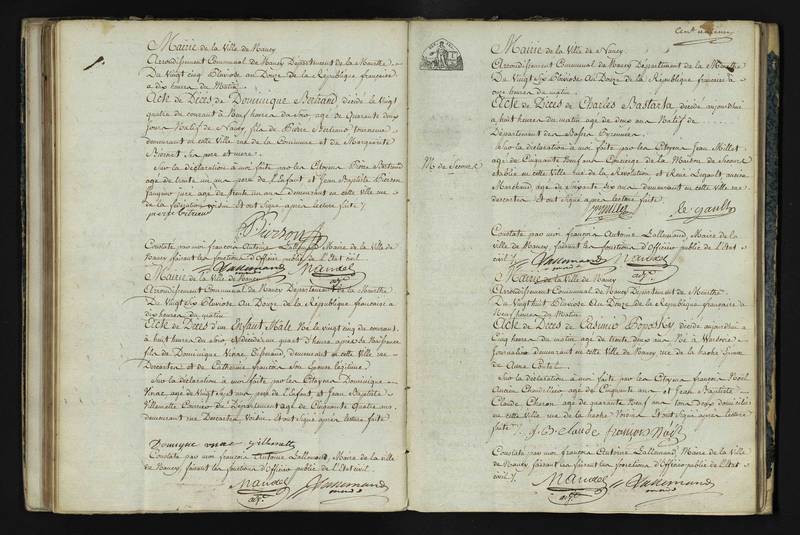 Mairie de la Ville de Nancy
Arrondissement Communal de Nancy Département de la Meurthe
Du Vingt cinq Pluviose au Douze de la République française
a dix heures du Matin
Acte de Décès de Dominique Bertrand, décédé le Vingt
quatre du courant à Neuf heures du Soir, age de Quarante deux
Jours Natif de Nancy, fils de Pierre Bertrand
demeurant en cette Ville rue de la Commune et de Marguerite
ses pere et mere.
Sur la déclaration à moi faite par les Citoyens Pierre Bertrand
age de trente un ans pere de l'Enfant et Jean Baptiste Pierson
age de trente un ans demeurant en cette Ville rue
de la et ont Signé après lecture faite
Pierson
Constaté par moi françois Antoine Lallemand Maire de la Ville de
Nancy faisant les fonctions d'Officier public de l'Etat civil.
Lallemand Mandel
Mairie de la Ville de Nancy
Arrondissement Communal de Nancy Département de la Meurthe
Du Vingt Six Pluviose au Douze de la République française a
dix heures du matin
Acte de Décès d'un Enfant Male Né le vingt cinq du courant
à huit heures du Soir, décédé un quart d'heure après sa Naissance
fils de Dominique Vinac, demeurant en cette Ville rue
Descartes et de Catherine françois Son Epouse légitime
Sur la déclaration à moi faite par les Citoyens Dominique
Vinac, age de Vingt Sept ans pere de l'Enfant et Jean Baptiste
Villemette de Département age de Cinquante Quatre ans
demeurant rue Descartes, Et ont Signé après lecture faite
Domique vinac villemette
Constaté par moi françois Antoine Lallemand, Maire de la Ville
de Nancy, faisant les fonctions d'Officier public de l'Etat civil.
Mandel Lallemand
Mairie de la Ville de Nancy
Arrondissement Communal de Nancy Département de la Meurthe
Du Vingt Six Pluviose Au Douze de la République française à
onze heures du matin
Acte de Décès de Charles Bastarra, décédé aujourd'hui
à huit heures du matin age de deux ans Natif de
Département des Basses Pyrennées
Sur la déclaration à moi faite par les Citoyens Jean Millot
age de Cinquante Neuf ans Concierge de la Maison de Secours
établie en cette Ville rue de la Révolution et René Legault ancien
Marchand age de Soixante dix ans demeurant en cette Ville rue
descartes Et ont Signé après lecture faite
Mon de Secours
J Millot le gault
Constaté par moi françois Antoine Lallemand, Maire de la
ville de Nancy, faisant les fonctions d'Officier public de l'Etat
civil
Lallemand Mandel
Mairie de la Ville de Nancy
Arrondissement Communal de Nancy Département de la Meurthe
Du Vingt huit Pluviose Au Douze de la République française à
Neuf heures du Matin
Acte de Décès de Casimir Popoosky, décédé aujourd'hui à
Cinq heures du matin age de trente deux ans Né à Varsovie
Journalier demeurant en cette Ville de Nancy rue de la hache Epoux
de Anne
Sur la déclaration à moi faite par les Citoyens françois Noël
age de Cinquante ans et Jean Baptiste
Claude age de quarante Neuf ans tous deux domiciliés
en cette Ville rue de la hache Et ont Signé après lecture
faite
J. B. Claude françois Noël
Constaté par moi françois Antoine Lallemand, Maire de la Ville
de Nancy faisant les fonctions d'Officier public de l'Etat
civil
Mandel Lallemand